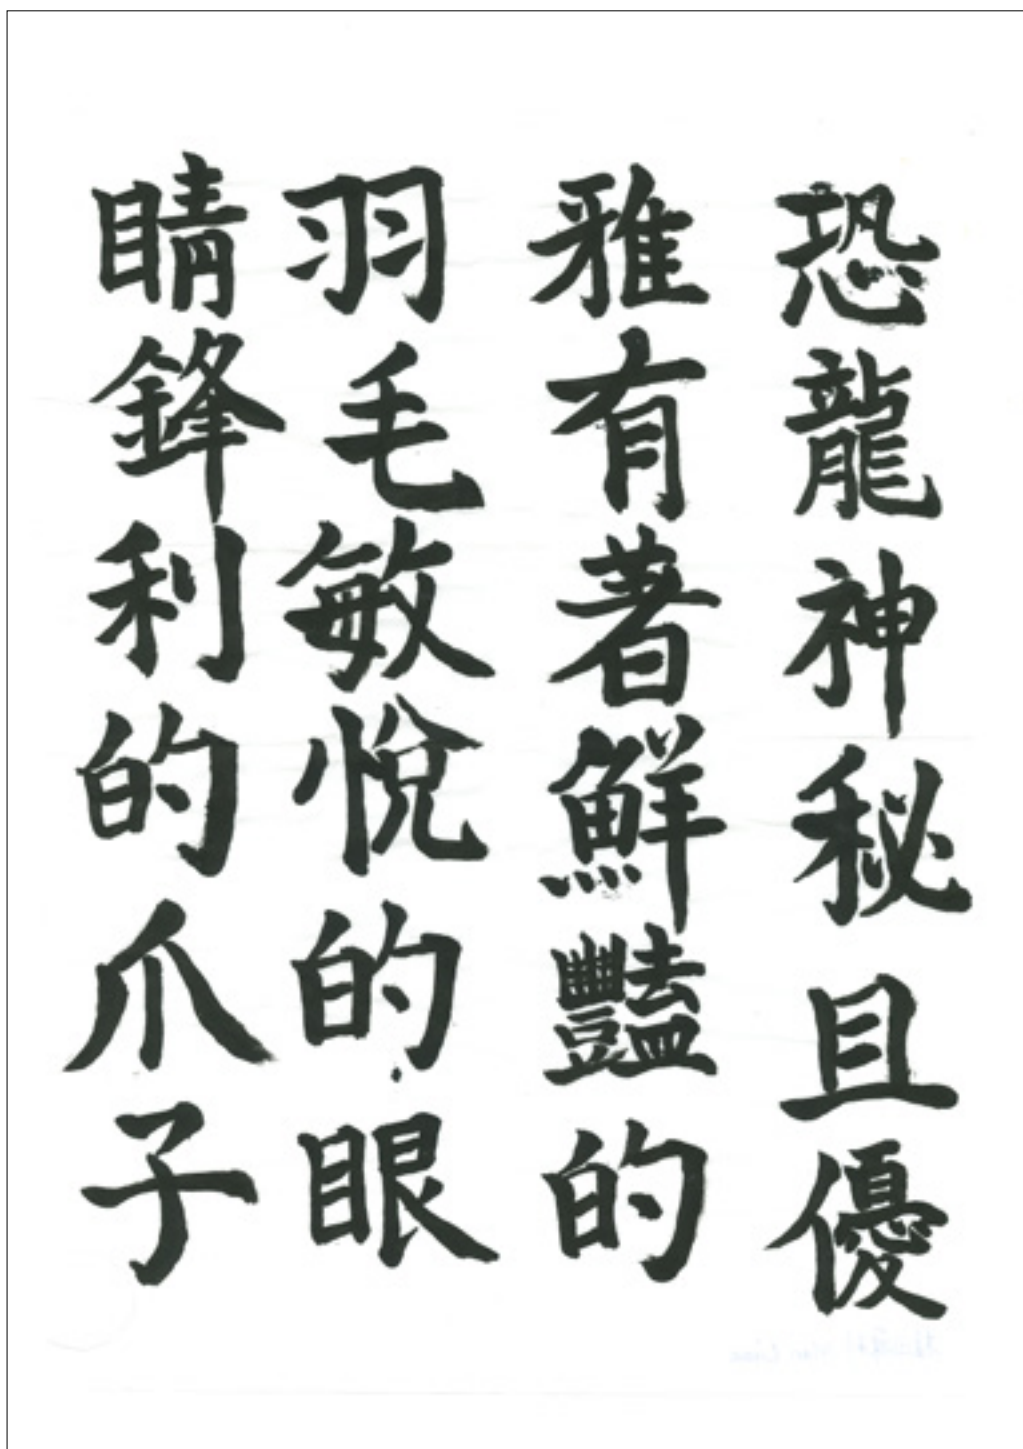 恐龍神秘且優
雅有著鮮豔的
羽毛敏悅的眼
睛鋒利的爪子